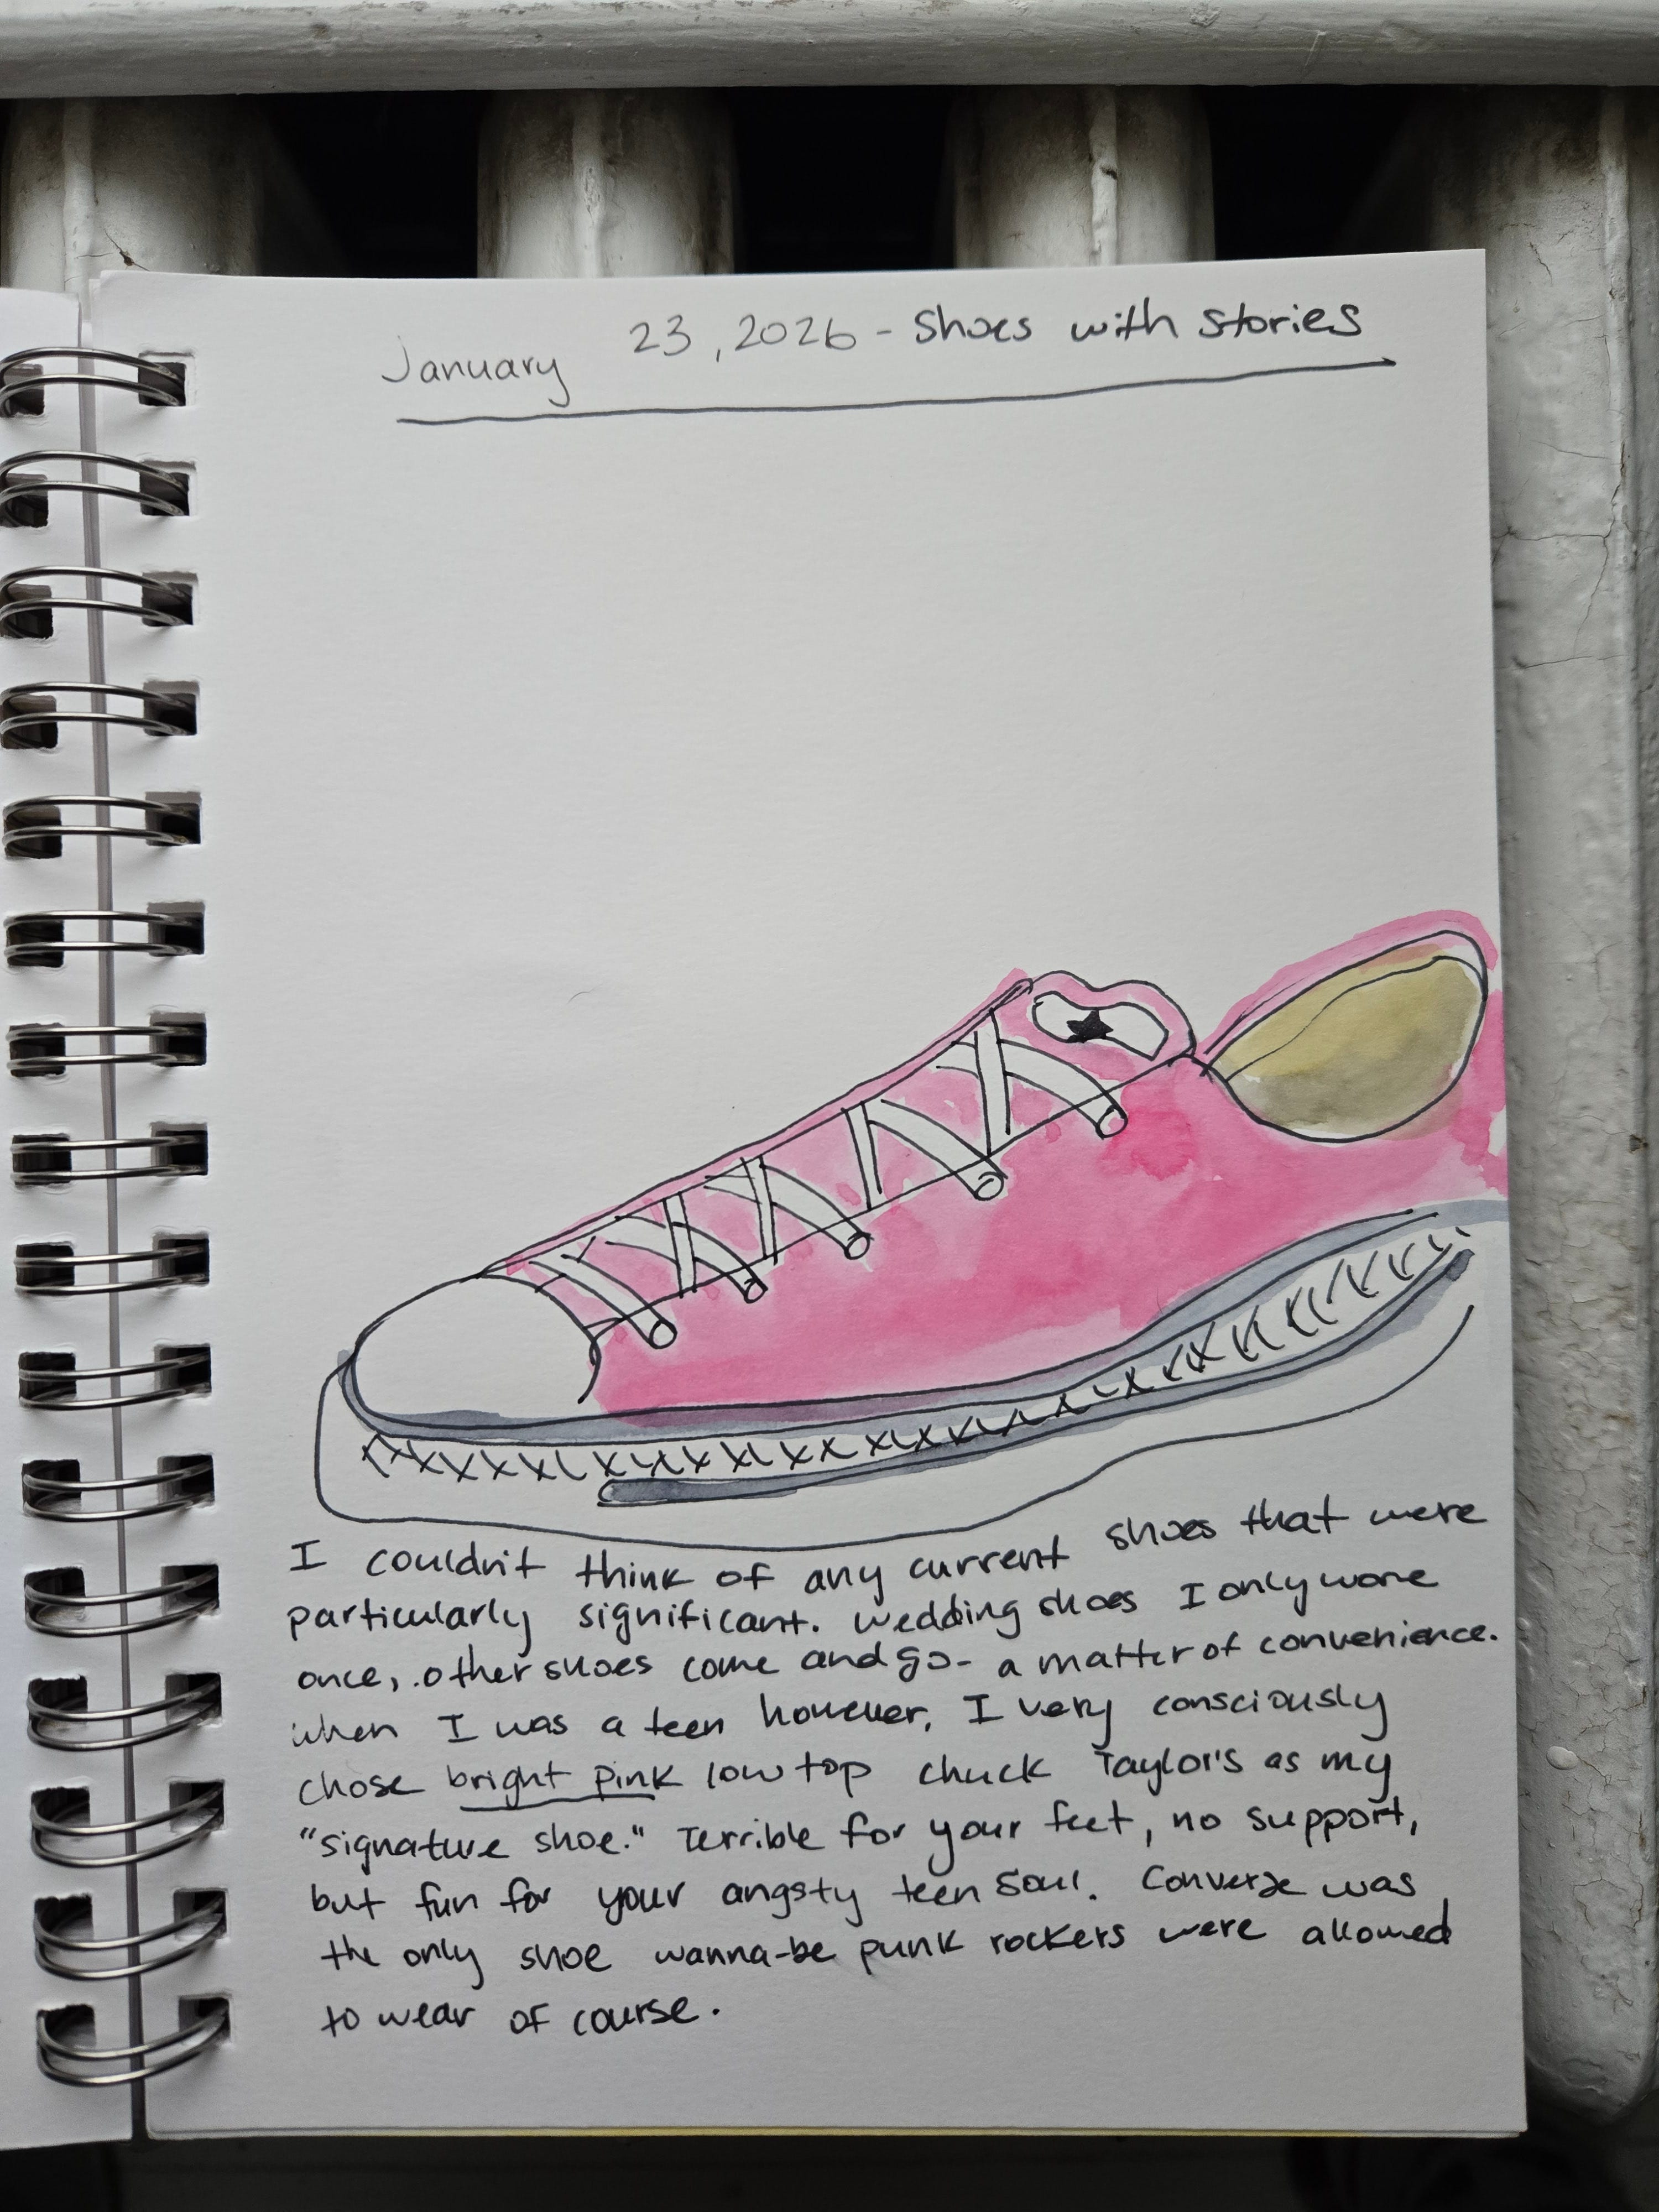 January 23, 2026 - Shoes with stories
I couldn't think of any current shoes that were
particularly significant. Wedding shoes I only wore
once, other shoes come and go - a matter of convenience.
When I was a teen however, I very consciously
chose bright pink low top chuck Taylor's as my
"signature shoe." Terrible for your feet, no support,
but fun for your angsty teen soul. Converse was
the only shoe wanna-be punk rockers were allowed
to wear of course.